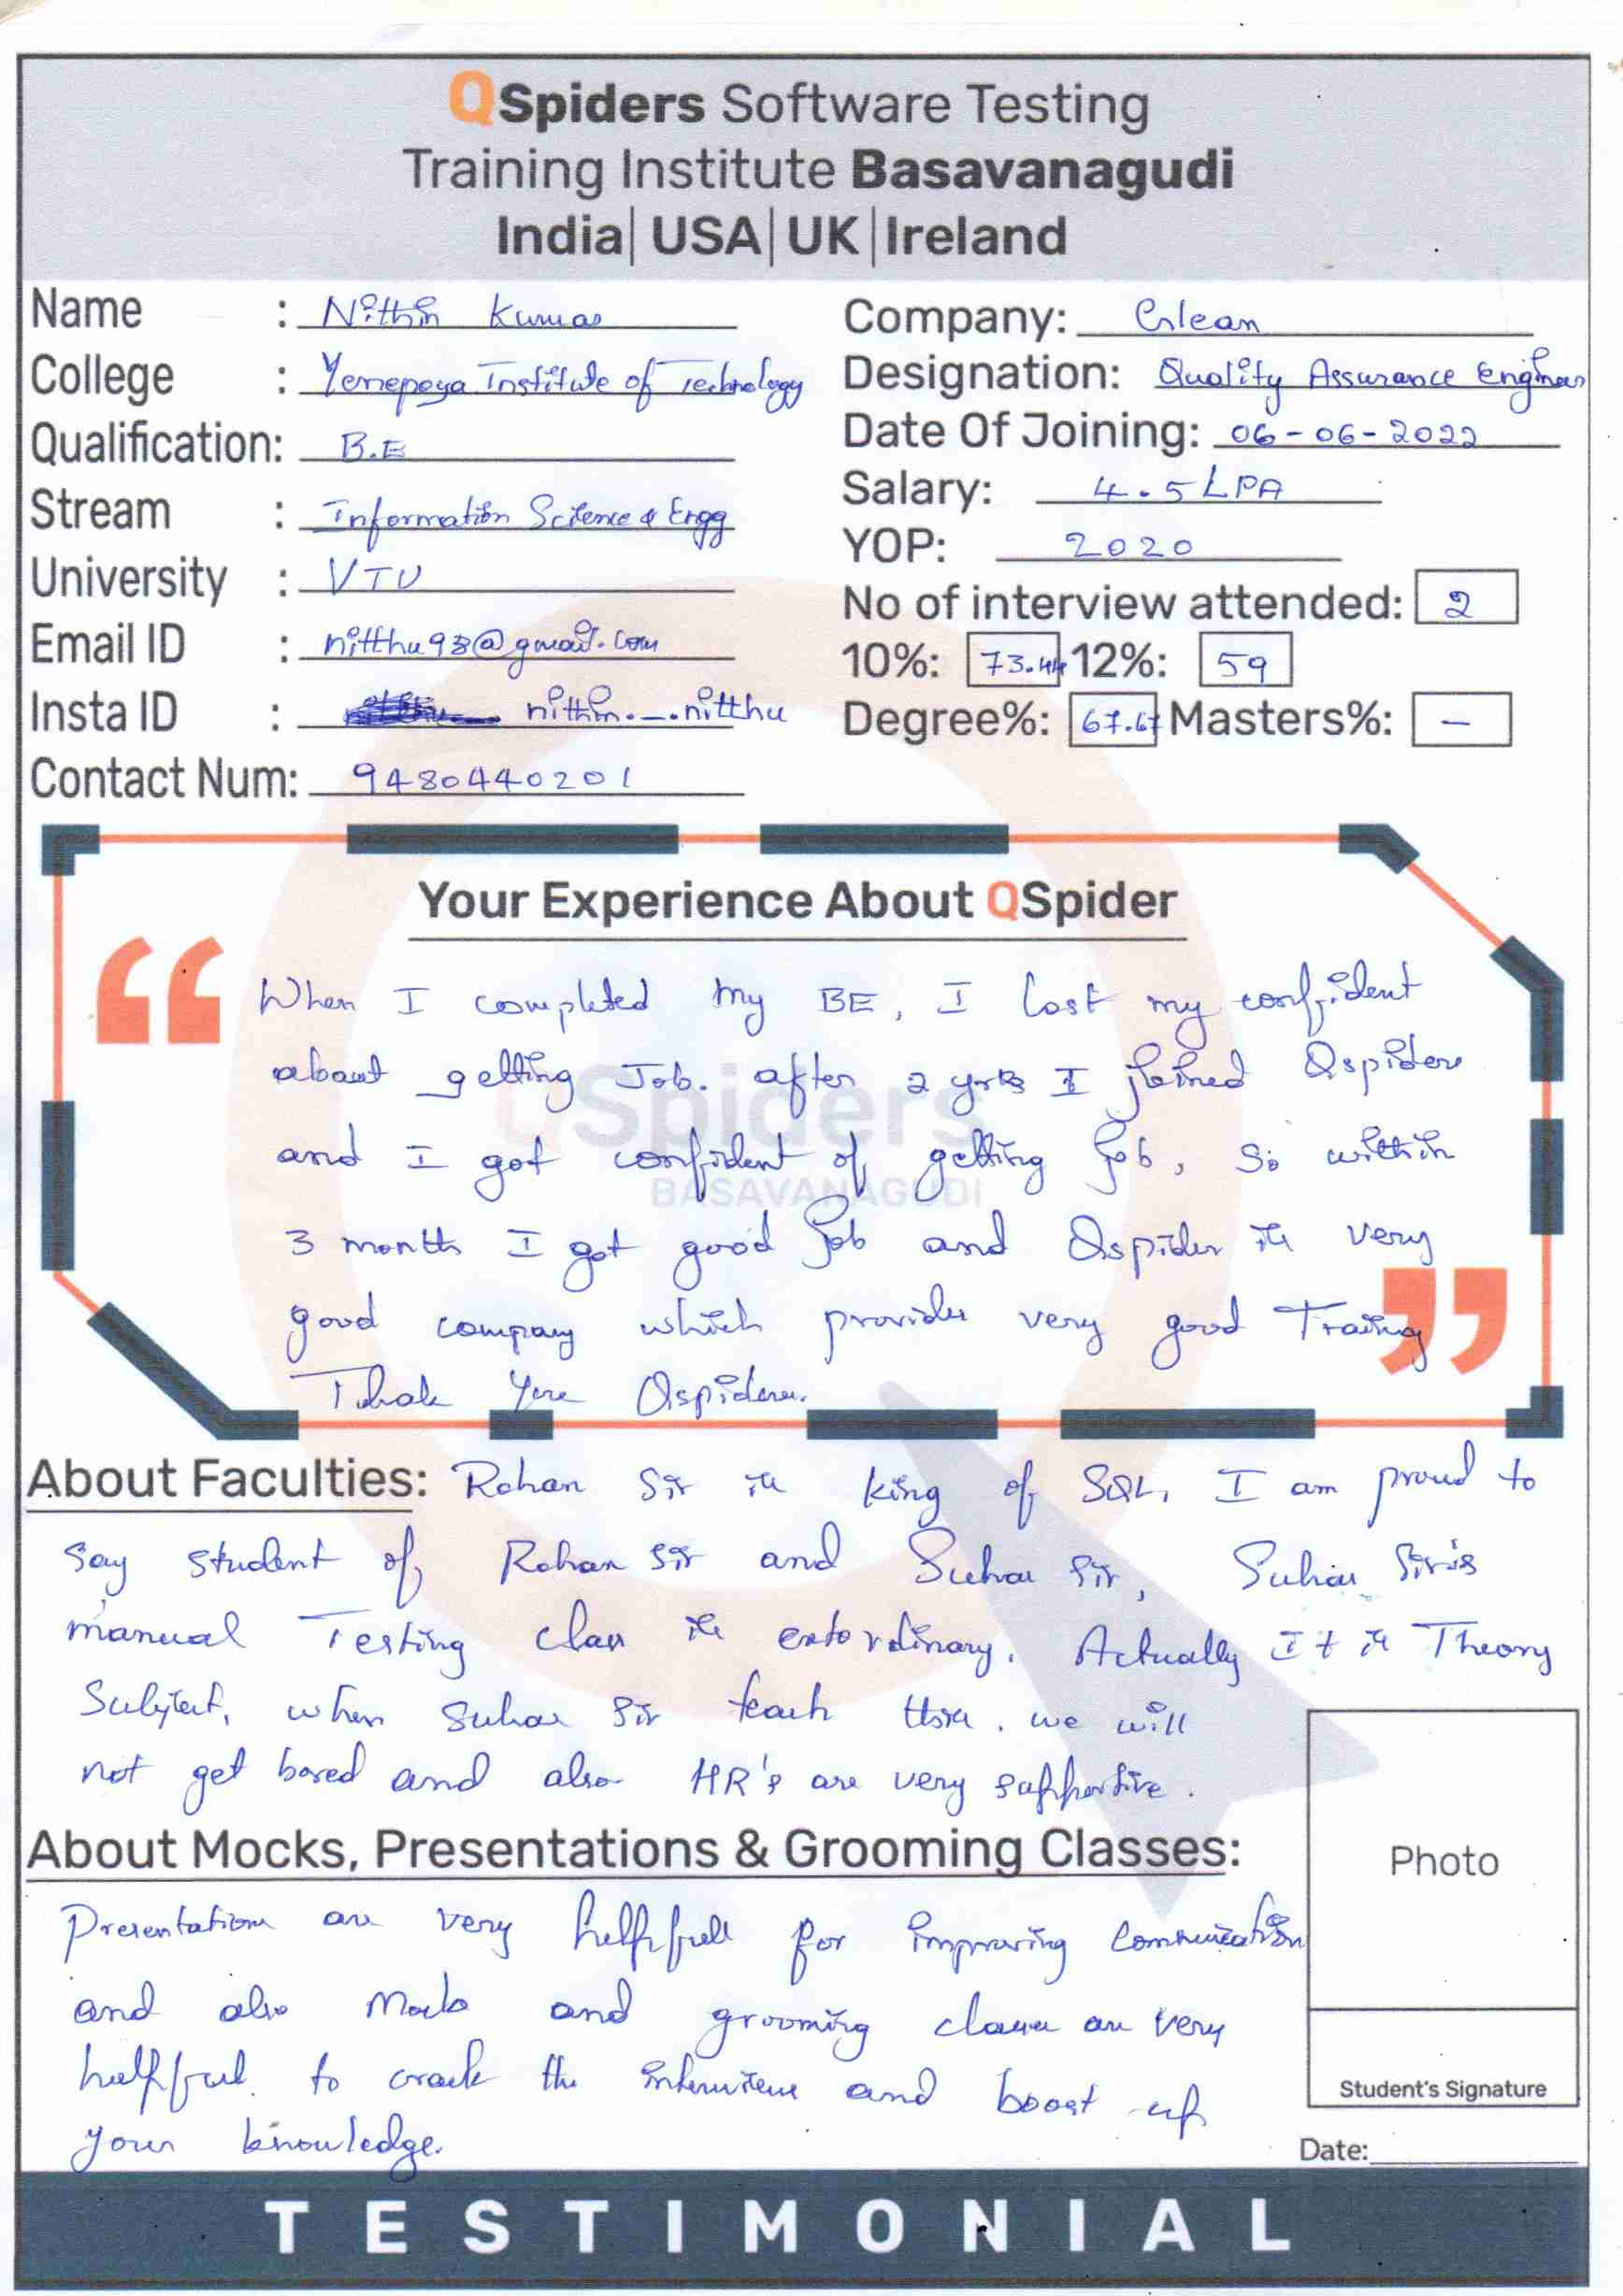 QSpiders Software Testing
Training Institute Basavanagudi
India| USA| UK |Ireland
Name : Nithin Kumar
College : Yenepoya Institute of Technology
Qualification: B.E
Stream : Information Science & Engg
University : VTU
Email ID : nitthu98@gmail.com
Insta ID : nithin._.nitthu
Contact Num: 9480440201
Company:
Designation: Quality Assurance Engineer
Date Of Joining: 06-06-2022
Salary: 4.5 LPA
YOP: 2020
No of interview attended: 2
10%: 73.44 12%: 59
Degree%: 67.67 Masters%: -
Your Experience About QSpider
When I completed my BE, I lost my confident
about getting Job. after 2 I joined Qspiders
and I got confident of getting job, So within
3 month I got good job and Qspider is very
good company which provides very good Traing
you Qspiders.
QSpiders
BASAVANAGUDI
About Faculties: Rohan Sir is king of SQL, I am proud to
say student of Rohan sir and Suhas sir, Suhas Sir's
manual Testing class is extordinary. Actually It is Theory
Subject, when Suhas Sir teach this. we will
not get bored and also HR's are very supportive.
About Mocks, Presentations & Grooming Classes:
Presentations are very helpfull for improving Communication
and also Mocks and grooming classes are very
helpful to crack the interviews and boost up
your knowledge.
Photo
Student's Signature
Date:
TESTIMONIAL